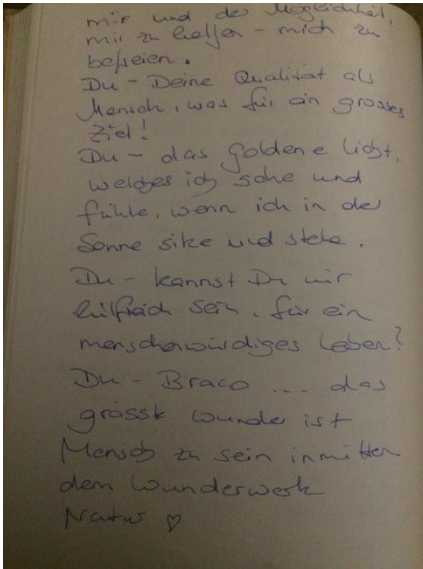 mir und der Möglichkeit,
mir zu helfen - mich zu
befreien.
Du - Deine Qualität als
Mensch, was für ein grosses
Ziel!
Du - das goldene Licht,
welches ich sehe und
fühle, wenn ich in der
Sonne sitze und stehe.
Du - kannst Du mir
hilfreich sein, für ein
menschenwürdiges Leben?
Du - Braco ... das
grösste Wunder ist
Mensch zu sein inmitten
dem Wunderwerk
Natur ♡